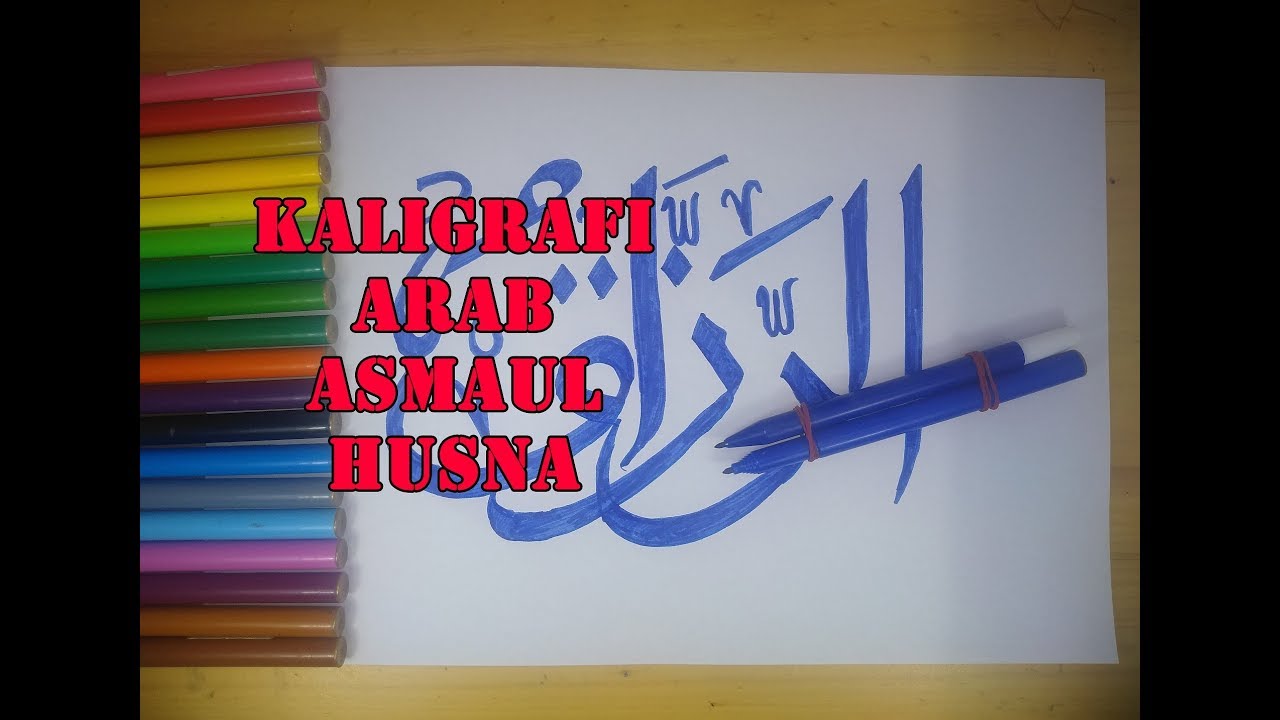 KALIGRAFI
ARAB
ASMAUL
HUSNA
الرَّزَّاقُ